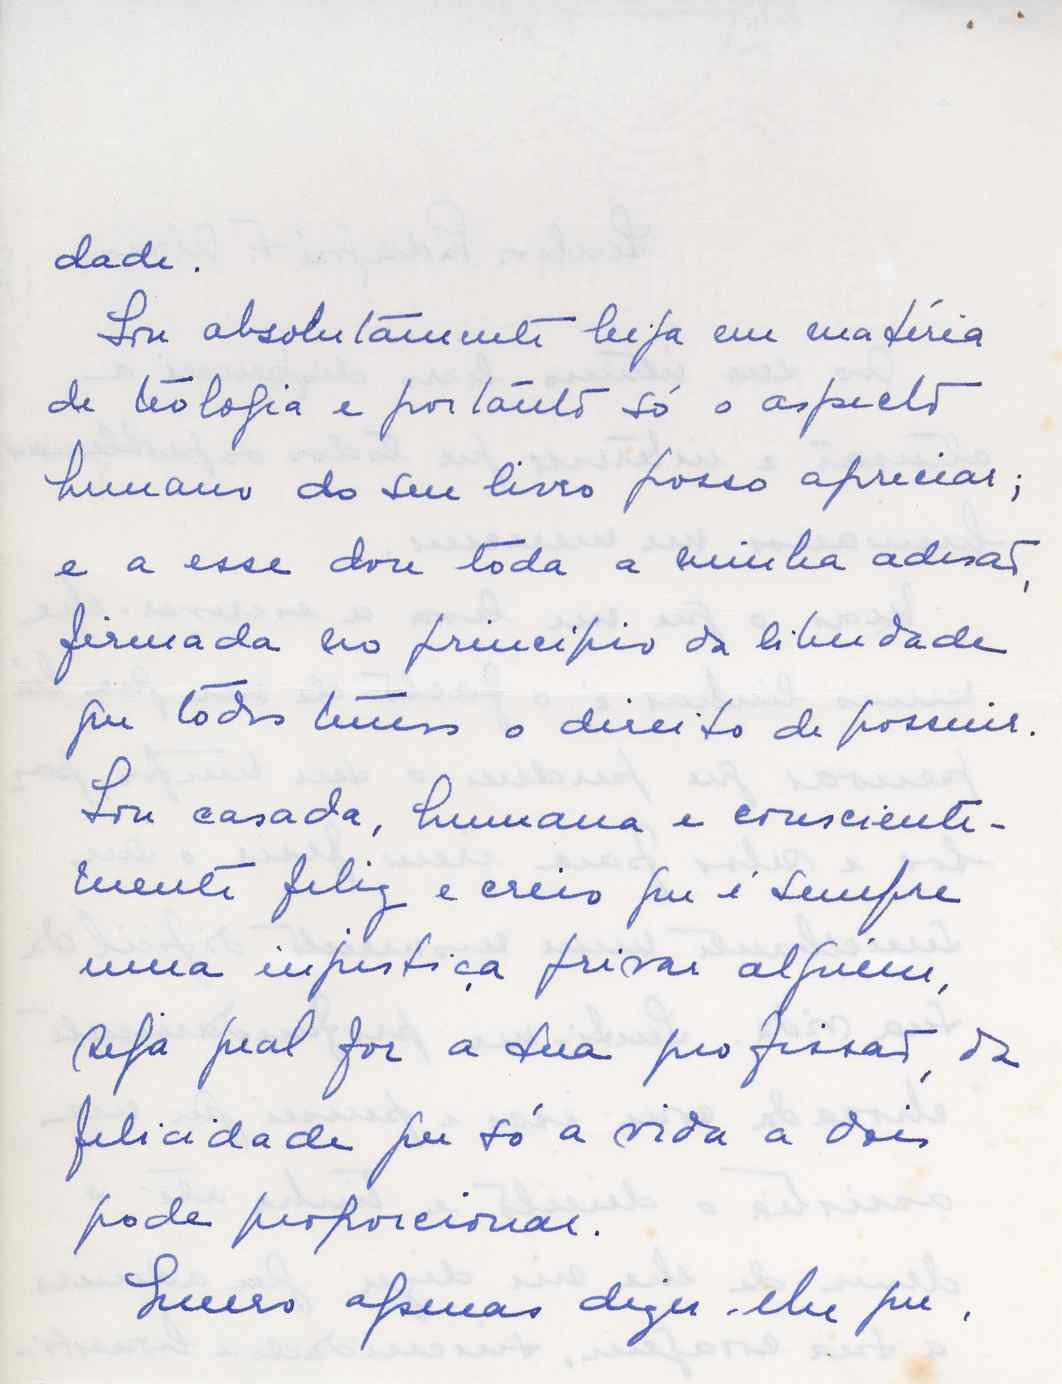 dade.
Sou absolutamente leiga em matéria
de teologia e portanto só o aspecto
humano do seu livro posso apreciar;
e a esse dou toda a minha adesão,
firmada no principio da liberdade
que todos temos o direito de possuir.
Sou casada, humana e consciente-
mente feliz e creio que é sempre
uma injustiça privar alguém,
seja qual for a sua profissão, da
felicidade que só a vida a dois
pode proporcionar.
Quero apenas dizer-lhe que,